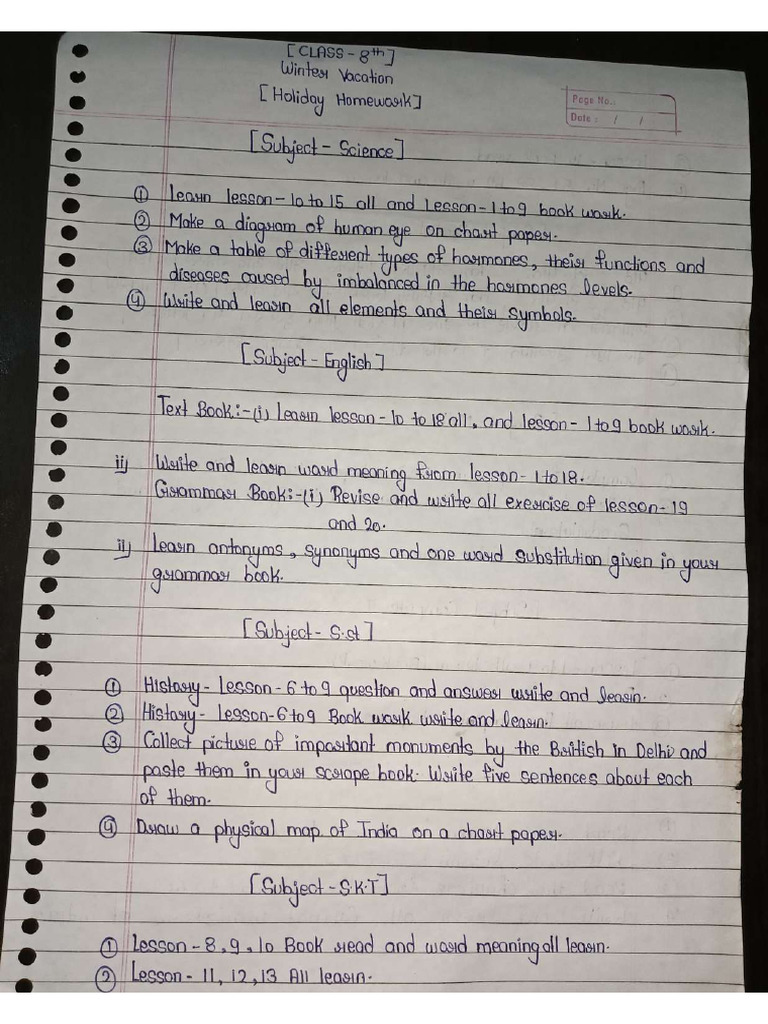 [CLASS - 8th]
Winter Vacation
[Holiday Homework]
Page No.:
Date : / /
[Subject - Science]
① learn lesson - 10 to 15 all and Lesson - 1 to 9 book work.
② Make a diagram of human eye on chart paper.
③ Make a table of different types of hormones, their functions and
diseases caused by imbalanced in the hormones levels.
④ Write and learn all elements and their symbols.
[Subject - English]
Text Book:-(i) learn lesson - 10 to 18 all, and lesson - 1 to 9 book work.
ii) Write and learn word meaning from lesson - 1 to 18.
Grammar Book:-(i) Revise and write all exercise of lesson - 19
and 20.
ii) learn antonyms, synonyms and one word substitution given in your
grammar book.
[Subject - S.st]
① History - Lesson - 6 to 9 question and answer write and learn.
② History - Lesson - 6 to 9 Book work write and learn.
③ Collect picture of important monuments by the British in Delhi and
paste them in your scrape book. Write five sentences about each
of them.
④ Draw a physical map of India on a chart paper.
[Subject - S.K.T]
① Lesson - 8, 9, 10 Book read and word meaning all learn.
② Lesson - 11, 12, 13 All learn.